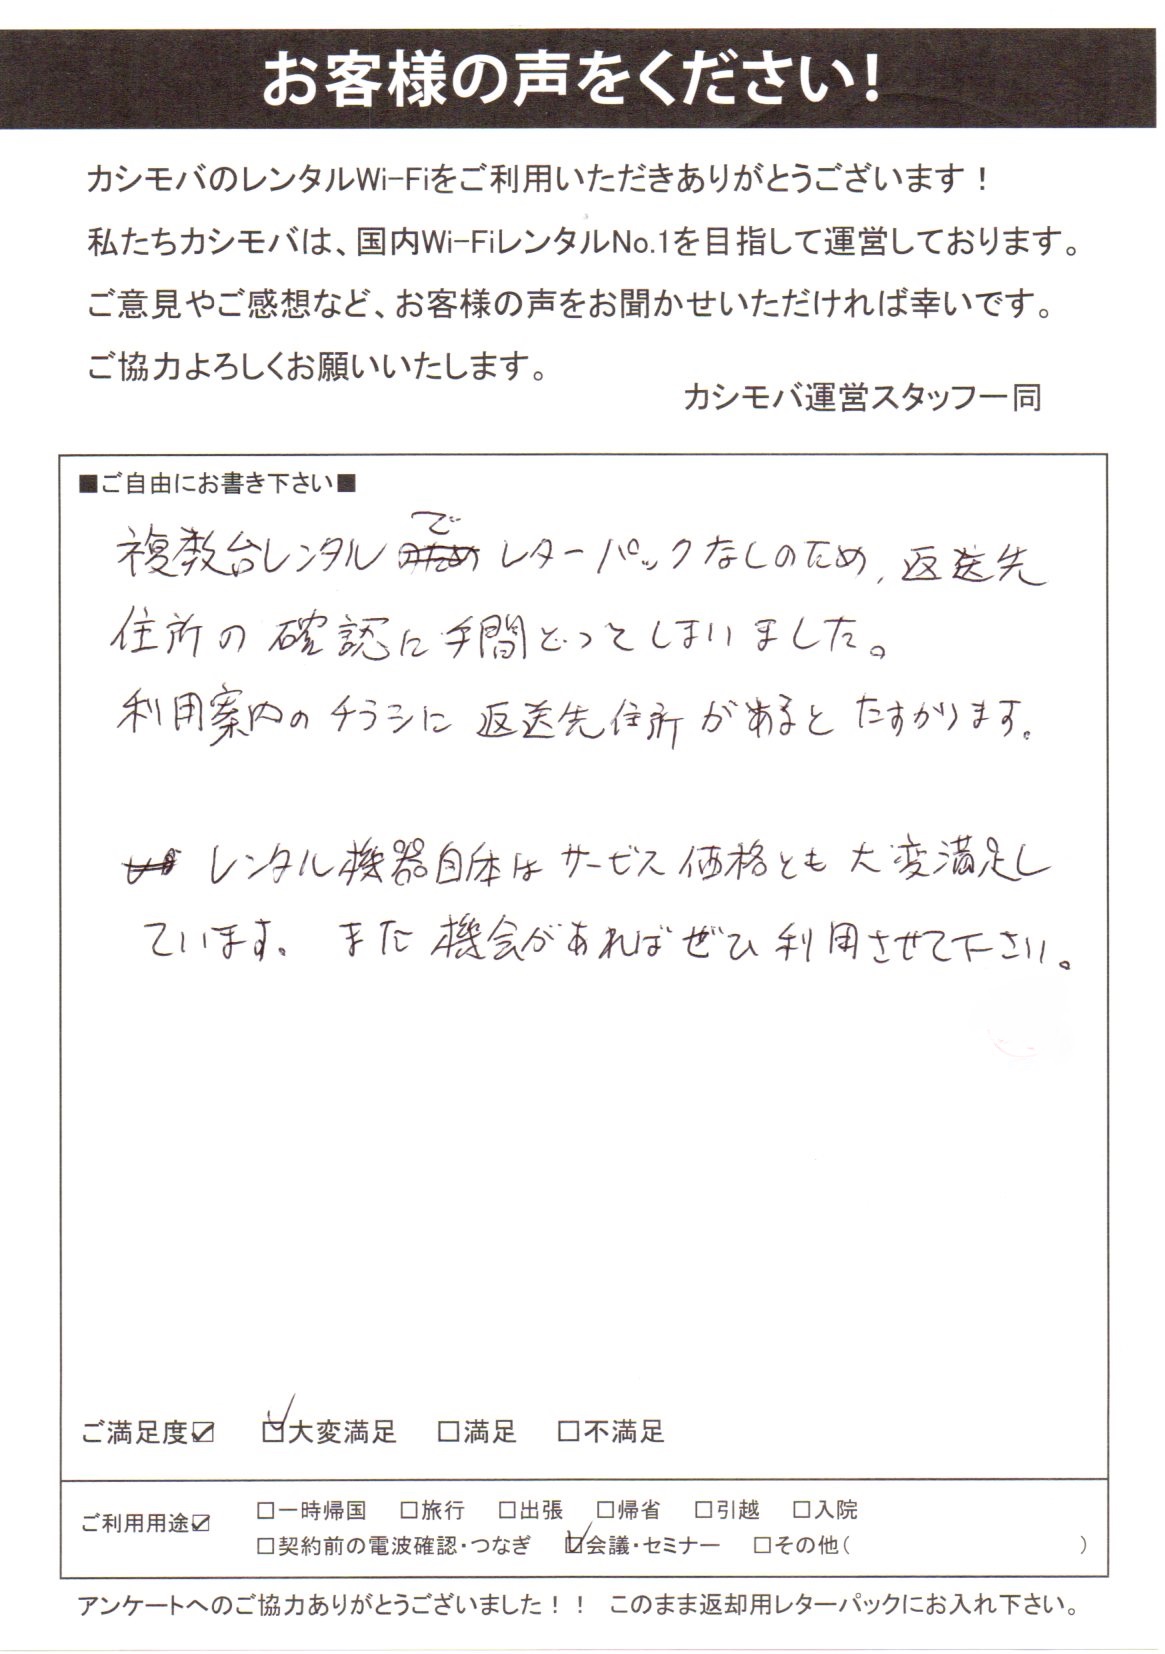 お客様の声をください！
カシモバのレンタルWi-Fiをご利用いただきありがとうございます！
私たちカシモバは、国内Wi-FiレンタルNo.1を目指して運営しております。
ご意見やご感想など、お客様の声をお聞かせいただければ幸いです。
ご協力よろしくお願いいたします。
カシモバ運営スタッフ一同
■ご自由にお書き下さい■
複数台レンタルでレターパックなしのため、返送先
住所の確認に手間どってしまいました。
利用案内のチラシに返送先住所があるとたすかります。
レンタル機器自体はサービス価格とも大変満足し
ています。また機会があればぜひ利用させて下さい。
ご満足度☑ ☑大変満足 □満足 □不満足
ご利用用途☑ □一時帰国 □旅行 □出張 □帰省 □引越 □入院
□契約前の電波確認・つなぎ ☑会議・セミナー □その他（ ）
アンケートへのご協力ありがとうございました！！ このまま返却用レターパックにお入れ下さい。